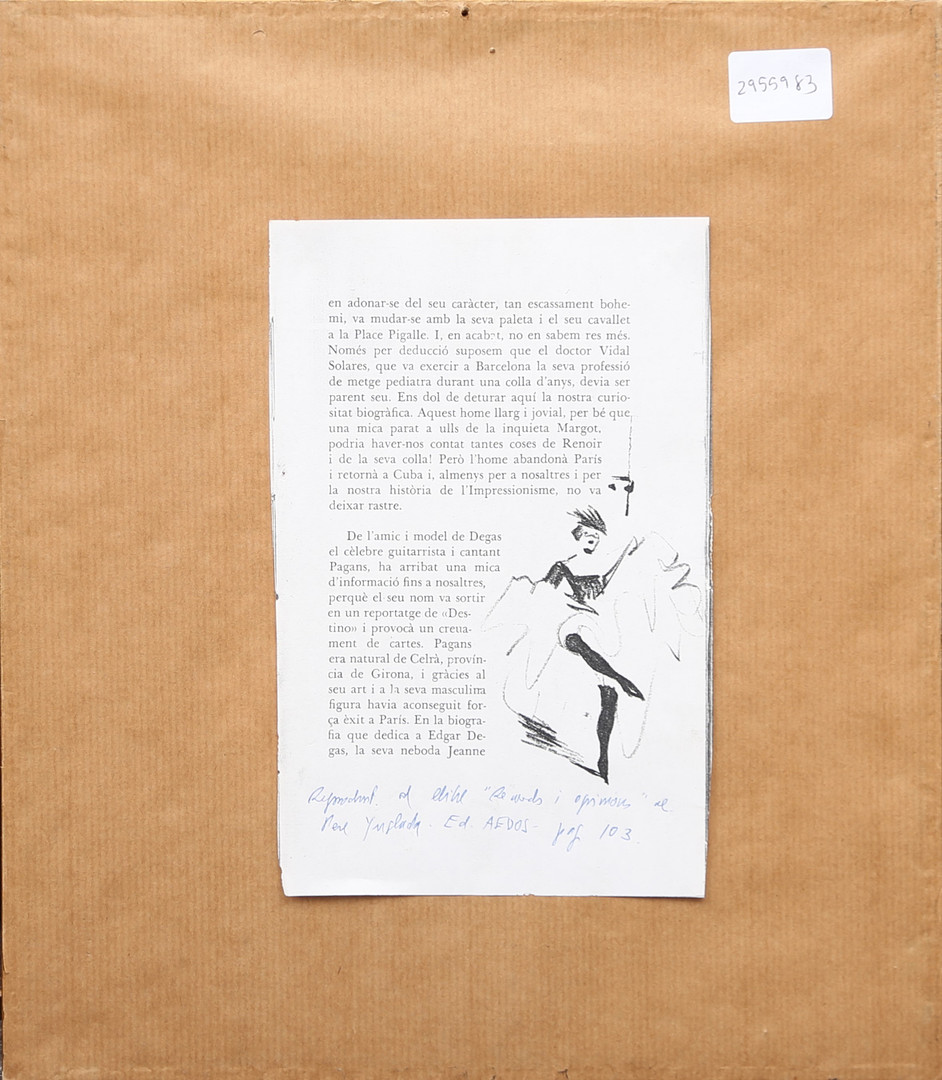 2955983
en adonar-se del seu caràcter, tan escassament bohe-
mi, va mudar-se amb la seva paleta i el seu cavallet
a la Place Pigalle. I, en acabat, no en sabem res més.
Només per deducció suposem que el doctor Vidal
Solares, que va exercir a Barcelona la seva professió
de metge pediatra durant una colla d'anys, devia ser
parent seu. Ens dol de deturar aquí la nostra curio-
sitat biogràfica. Aquest home llarg i jovial, per bé que
una mica parat a ulls de la inquieta Margot,
podria haver-nos contat tantes coses de Renoir
i de la seva colla! Però l'home abandonà París
i retornà a Cuba i, almenys per a nosaltres i per
la nostra història de l'Impressionisme, no va
deixar rastre.
De l'amic i model de Degas
el cèlebre guitarrista i cantant
Pagans, ha arribat una mica
d'informació fins a nosaltres,
perquè el seu nom va sortir
en un reportatge de «Des-
tino» i provocà un creua-
ment de cartes. Pagans
era natural de Celrà, provín-
cia de Girona, i gràcies al
seu art i a la seva masculina
figura havia aconseguit for-
ça èxit a París. En la biogra-
fia que dedica a Edgar De-
gas, la seva neboda Jeanne
"Records i opinions" de
Pere Ynglada - Ed. AEDOS - pag 103